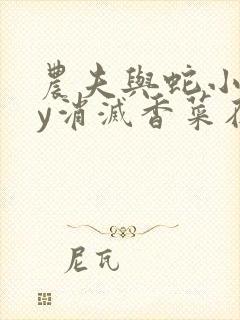 農夫與蛇小
y消滅香菜
尼瓦